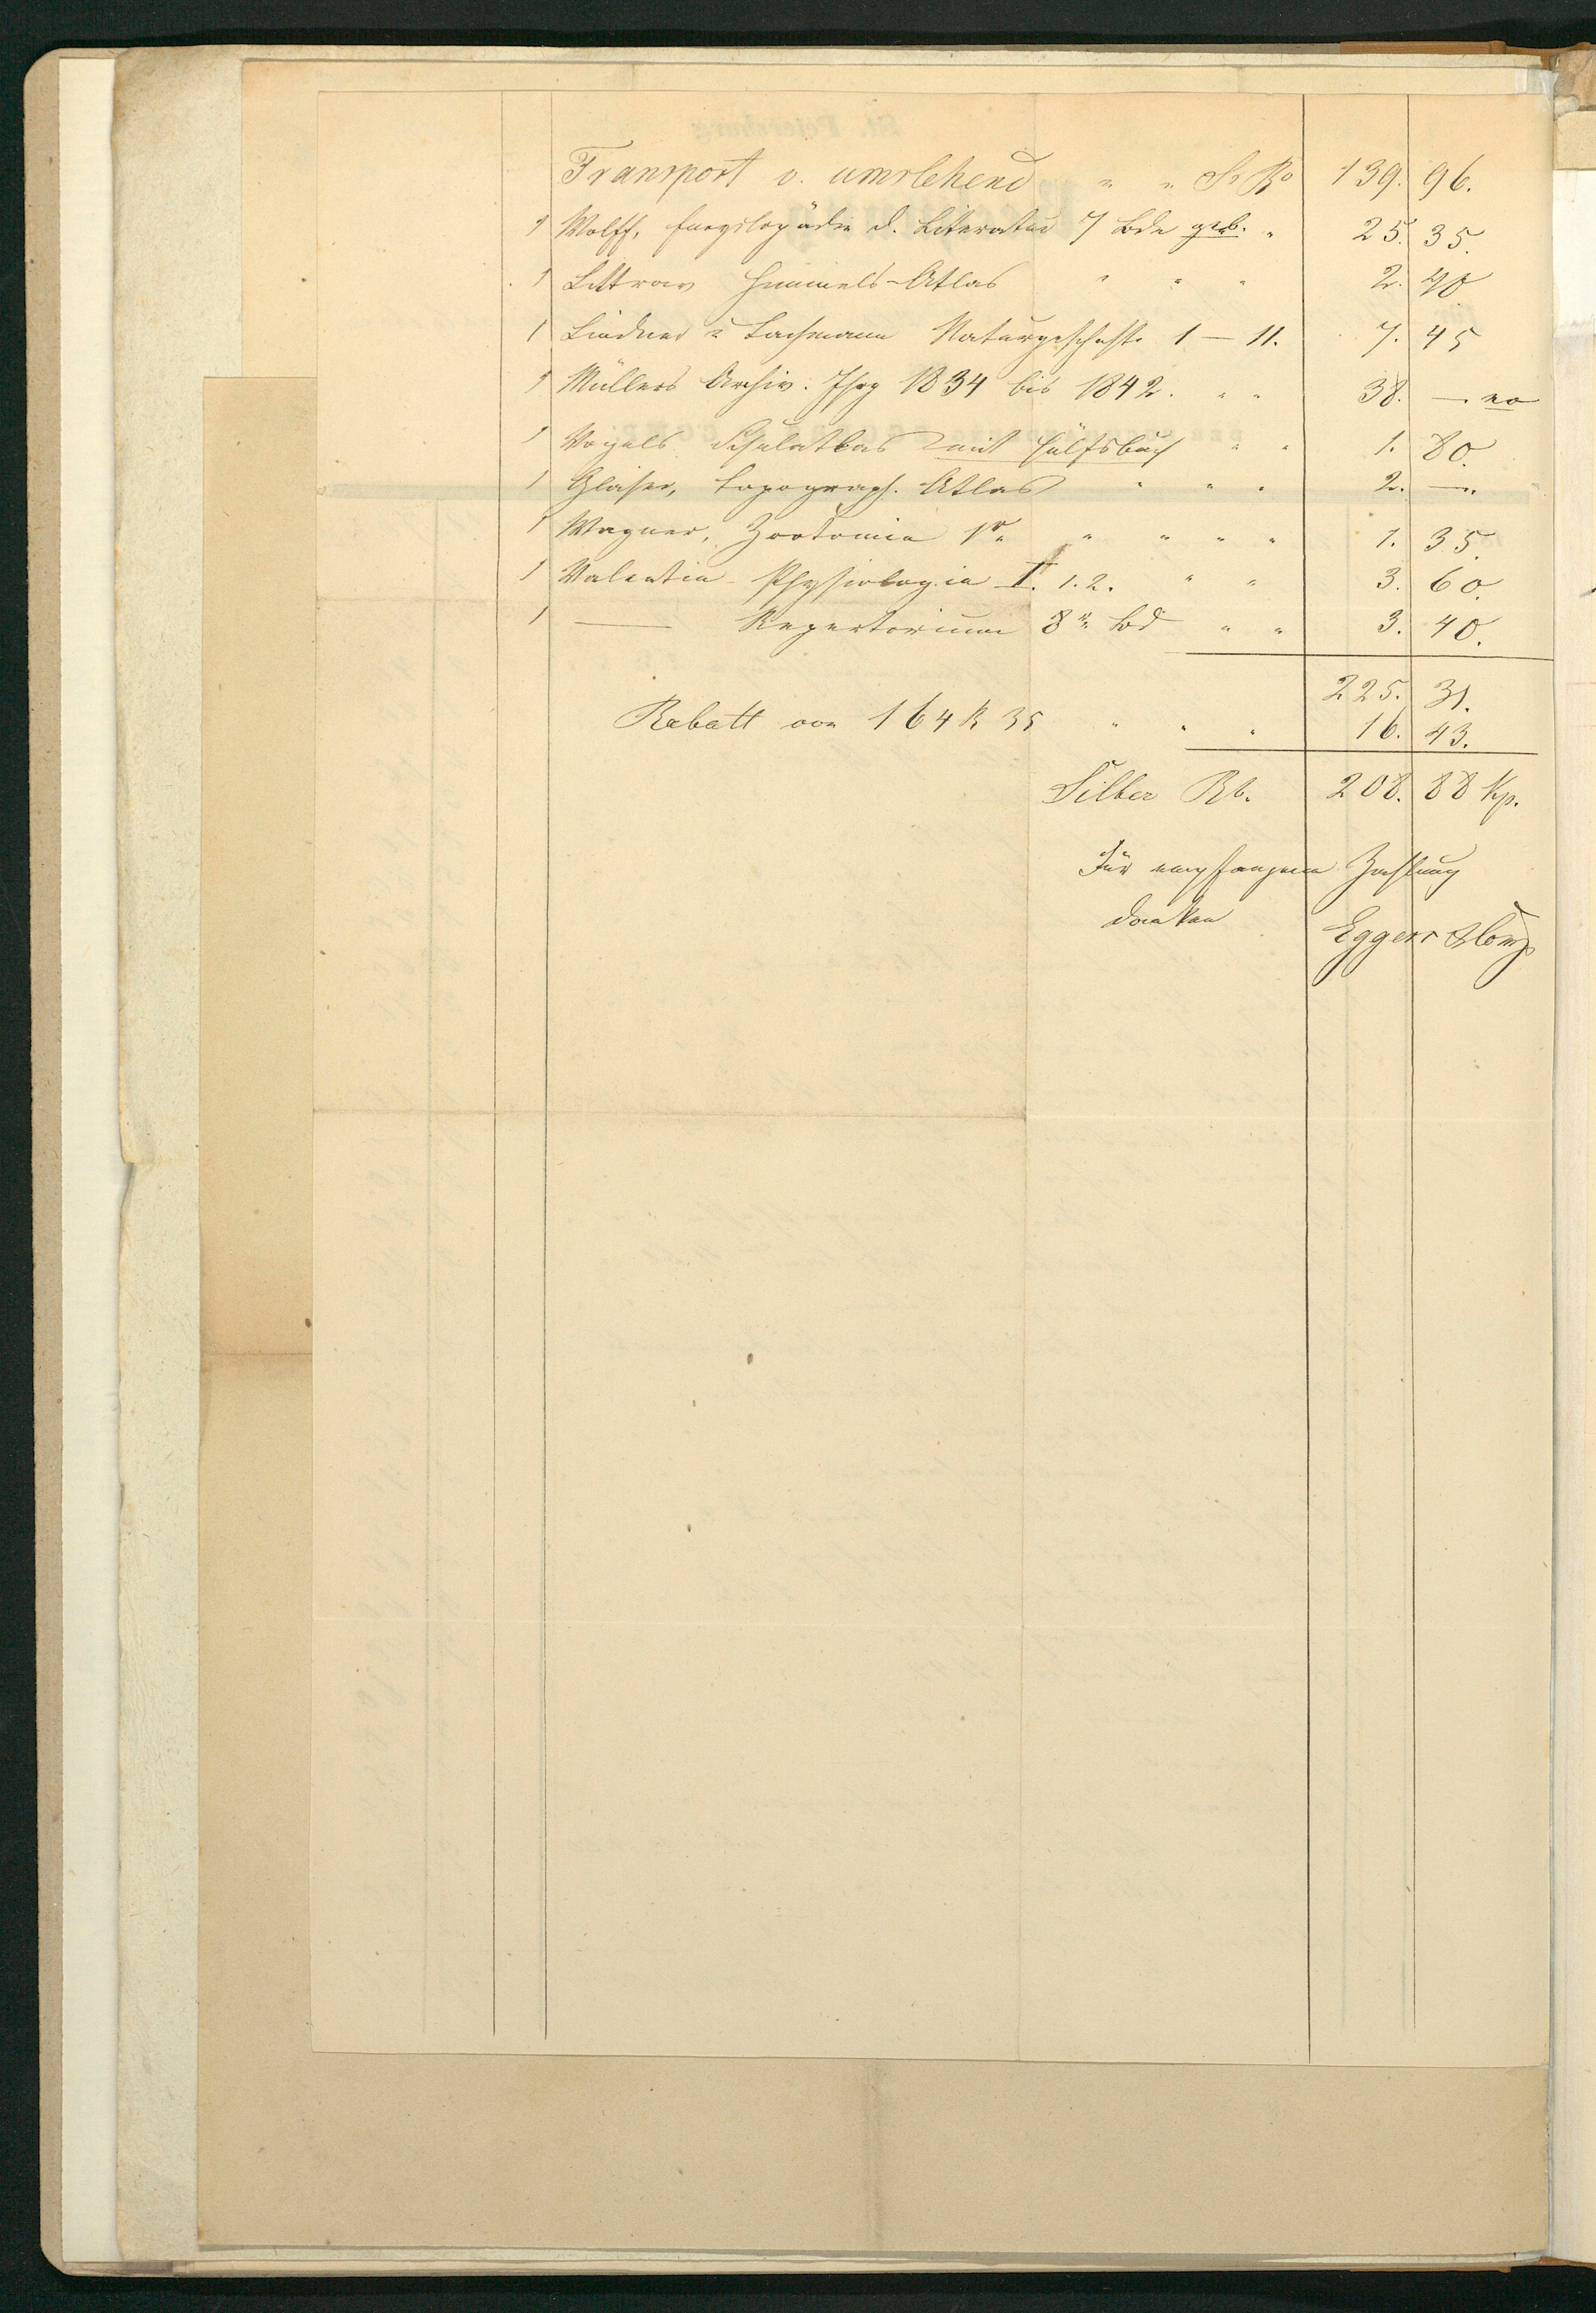 Transport v. umstehend " " S. Ro 139. 96.
1 Wolff, Encyclopädie d. Literatur 7 Bde geb. " 25. 35.
1 Littrow Himmels-Atlas " " " 2. 40
1 Lindner u Lachmann Naturgeschichte 1 — 11. 7. 45
1 Müllers Archiv. Jhrg 1834 bis 1842. " " 38. — no
1 Vogels Schulatlas mit Hülfsbuch " " 1. 80.
1 Glaser, topograph. Atlas " " " 2. — "
1 Wagner, Zootomie 1r " " " " 1. 35.
1 Valentin Physiologie II. 1. 2. " " 3. 60.
1 — Repertorium 8r Bd " " 3. 40.
225. 31.
Rabatt von 164 R 35 " " " 16. 43.
Silber Rb. 208. 88 Kp.
Für empfangene Zahlung
danken
Eggers & Comp